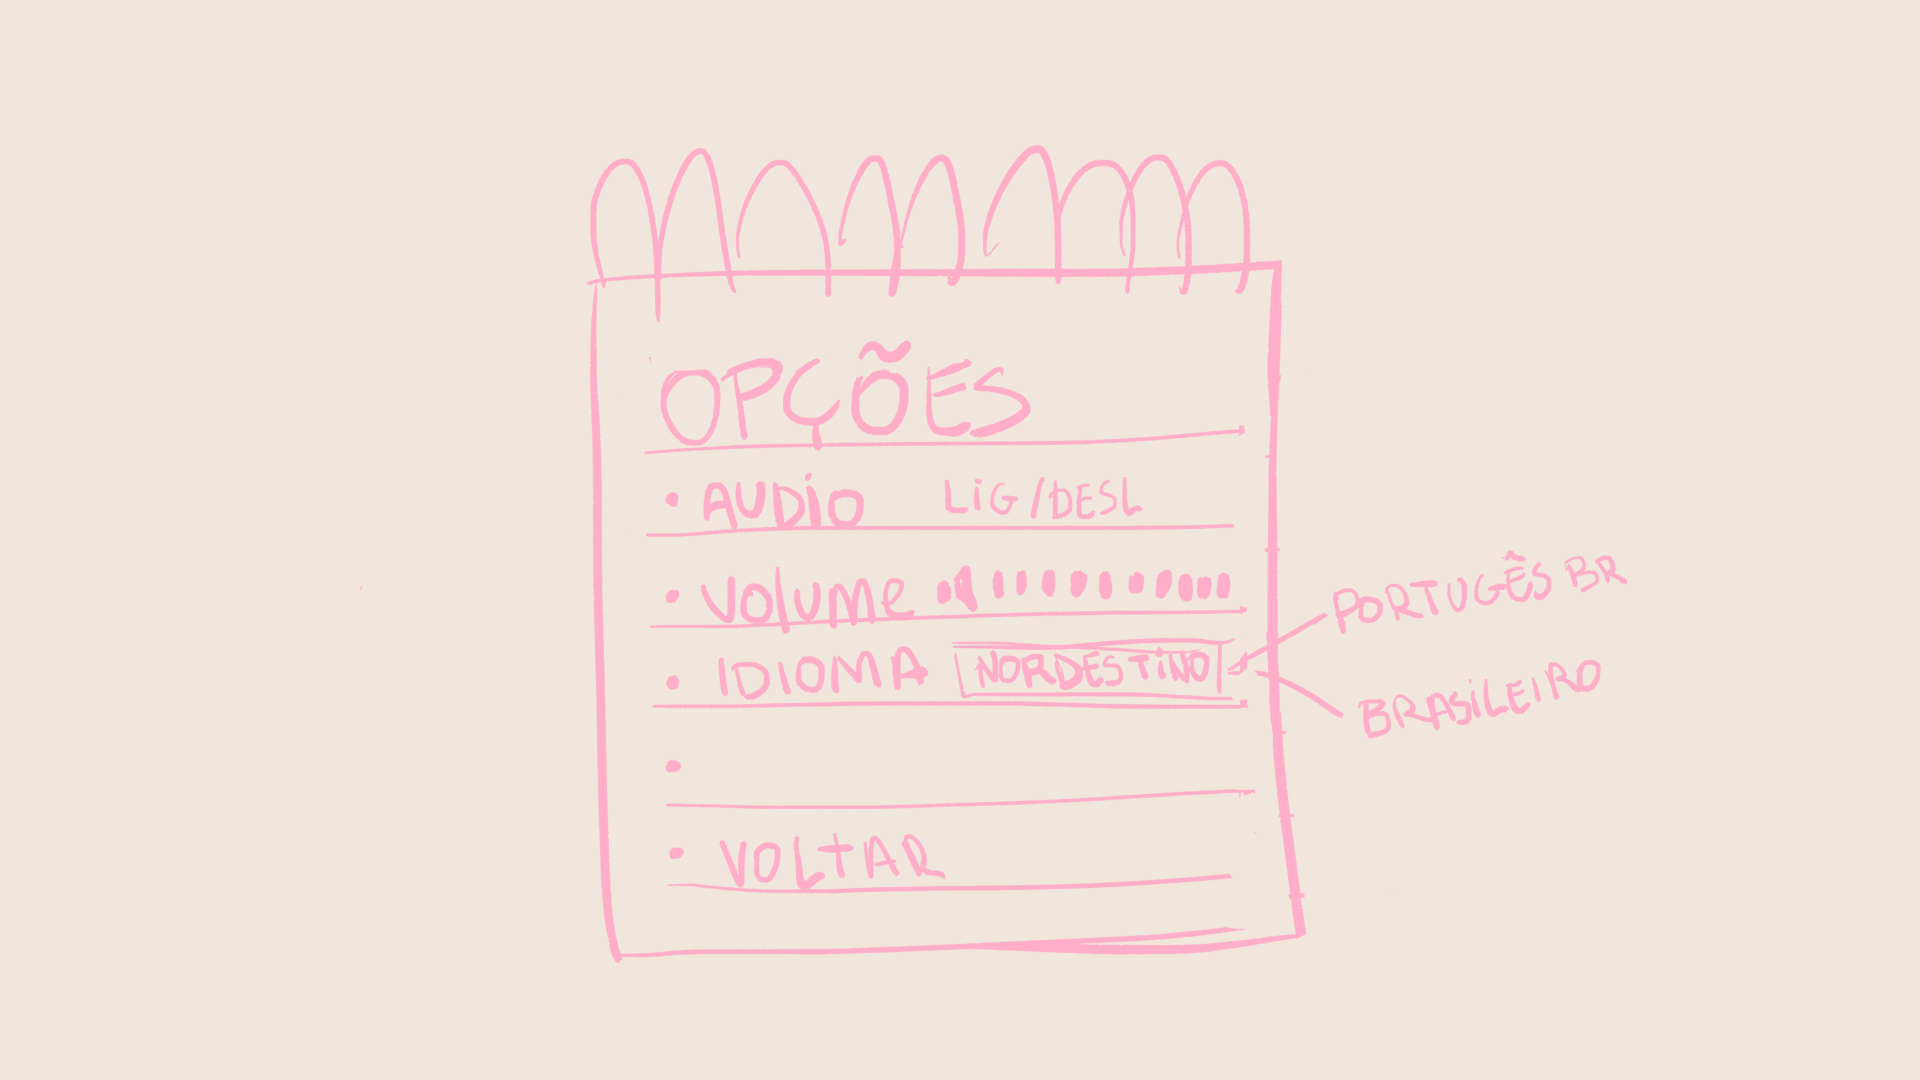 OPÇÕES
• AUDIO LiG/DESL
• VOLUME
• IDIOMA NORDESTiNO
PORTUGÊS BR
BRASiLEIRO
•
• VOLTAR